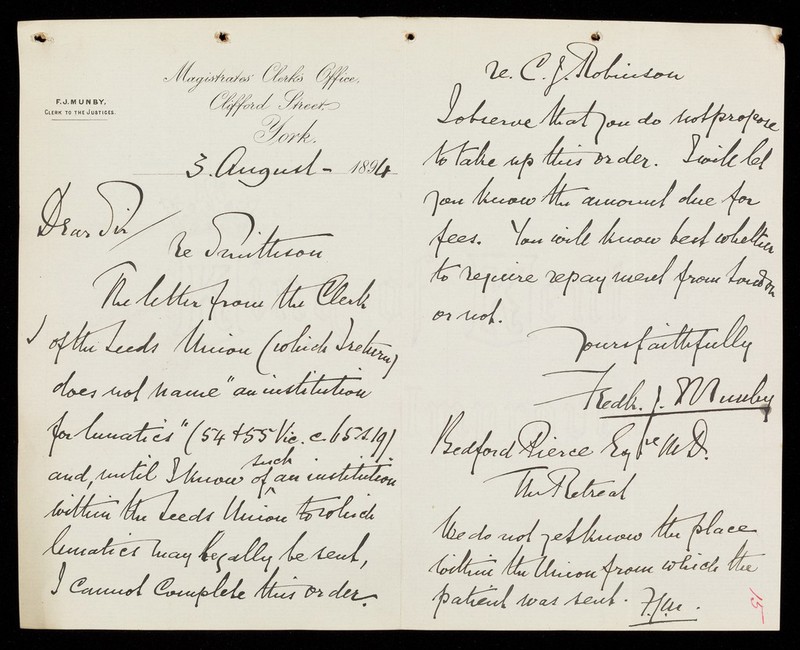 F.J. MUNBY,
CLERK TO THE JUSTICES.
Magistrates' Clerks Office,
Clifford Street,
York.
3. August - 1894
Dear Sir/
re Smithson
The letter from the Clerk
of the Leeds Union (which I return)
does not name "an institution
for lunatics" (54 & 55 Vic. c. 65 s. 19)
and, until I know of such an institution
within the Leeds Union to which
lunatics may legally be sent,
I cannot complete this order.
re. C. J. Robinson
I observe that you do not propose
to take up this order. I will let
you know the amount due for
fees. You will know best whether
to require repayment from London
or not.
Yours faithfully
Fredk. J. Munby
Bedford Pierce Esqre M.D.
The Retreat
We do not yet know the place
within the Union from which the
patient was sent. F.J.M.
15